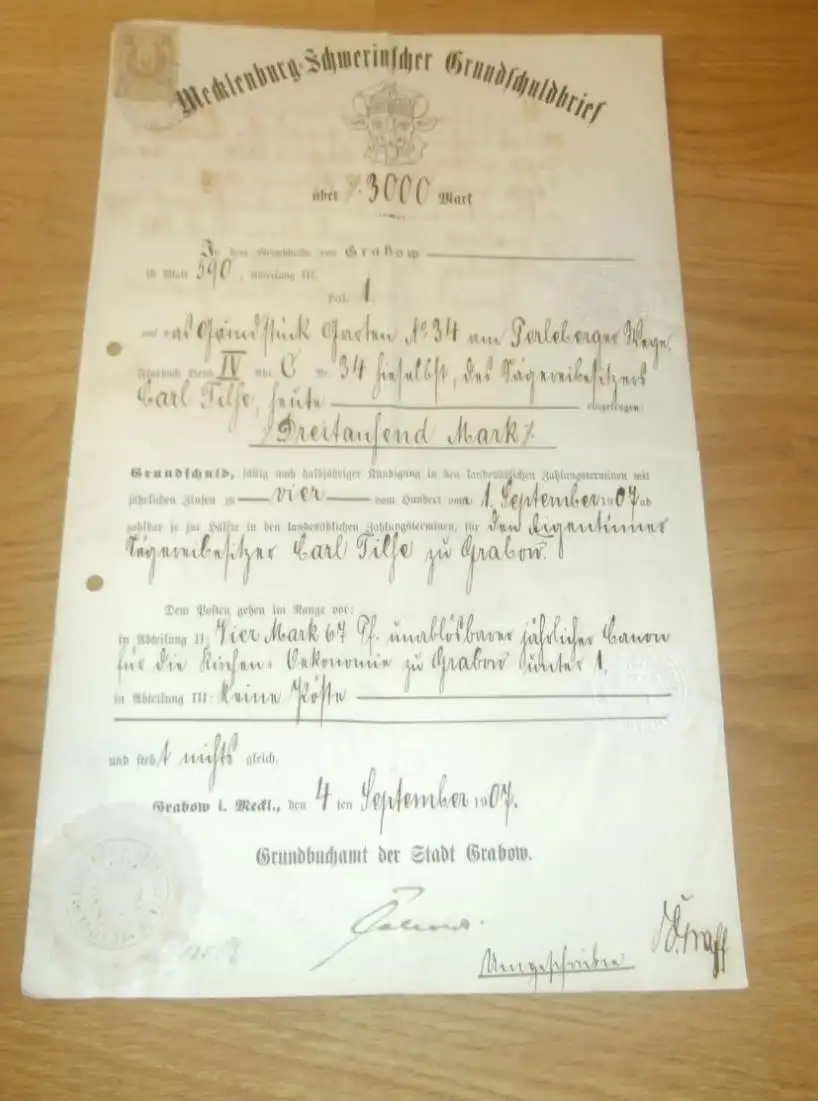 Mecklenburg-Schwerinscher Grundschuldbrief
über ⁒ 3000 Mark
In dem Grundbuche von Grabow
ist Blatt 590, Abteilung III,
Fol. 1.
auf das Grundstück Garten No 34 am Perleberger Wege,
Flurbuch Sect. IV Abt. C Nr. 34 hieselbst, des Sägereibesitzers
Carl Tilse, heute eingetragen:
⁒ Dreitausend Mark ⁒
Grundschuld, fällig nach halbjähriger Kündigung in den landesüblichen Zahlungsterminen mit
jährlichen Zinsen zu vier vom Hundert vom 1. September 1907 ab
zahlbar je zur Hälfte in den landesüblichen Zahlungsterminen, für den Eigentümer
Sägereibesitzer Carl Tilse zu Grabow.
Dem Posten gehen im Range vor:
in Abteilung II: Vier Mark 67 Pf. unablösbarer jährlicher Canon
für die Kirchen-Oekonomie zu Grabow unter 1.
in Abteilung III: Keine Pöste
und steht nichts gleich.
Grabow i. Meckl., den 4ten September 1907.
Grundbuchamt der Stadt Grabow.
Umgeschrieben